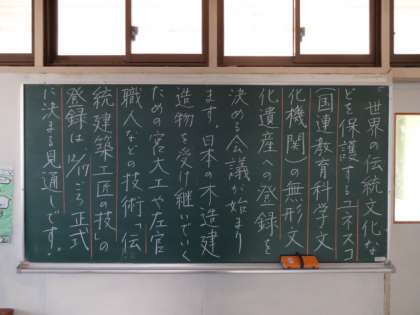 世界の伝統文化な
どを保護するユネスコ
(国連教育科学文
化機関)の無形文
化遺産への登録を
決める会議が始まり
ます。日本の木造建
造物を受け継いでいく
ための宮大工や左官
職人などの技術「伝
統建築工匠の技」の
登録は12/17ごろ正式
に決まる見通しです。